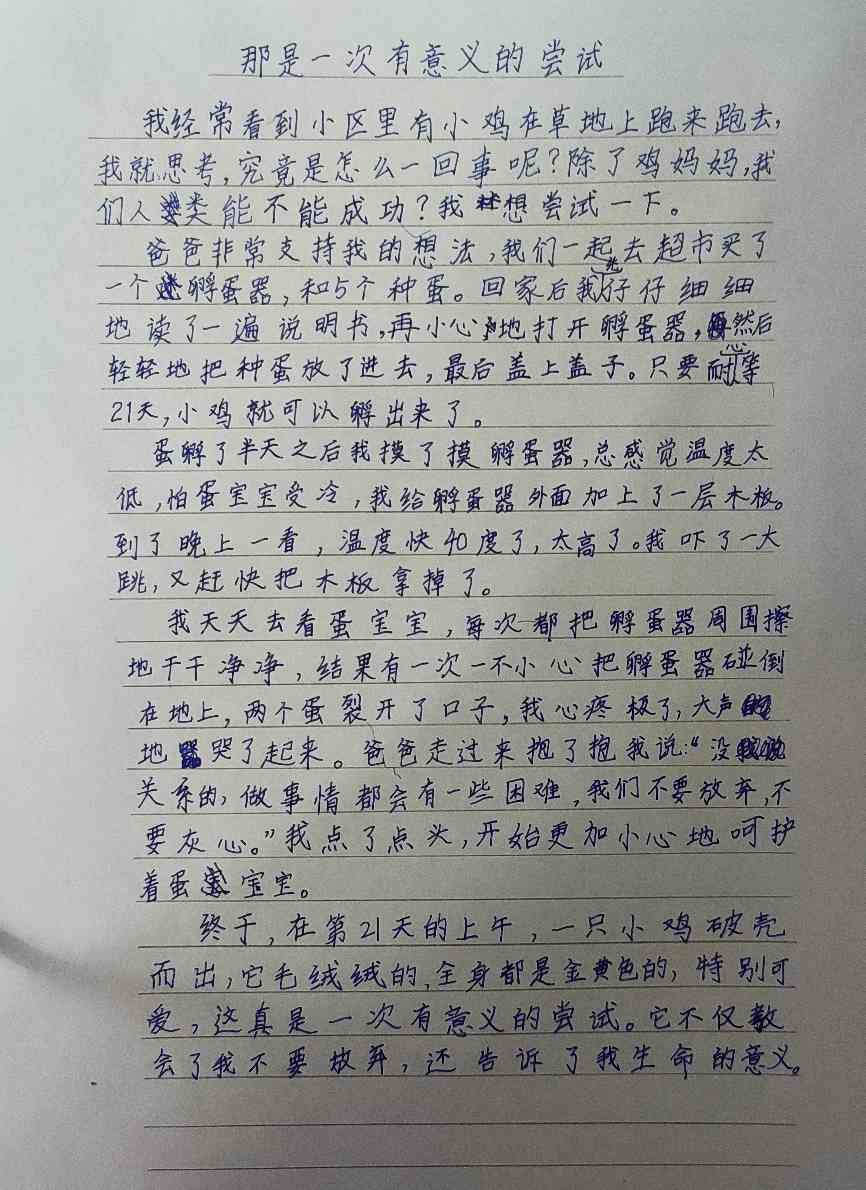 那是一次有意义的尝试
我经常看到小区里有小鸡在草地上跑来跑去,
我就思考,究竟是怎么一回事呢?除了鸡妈妈,我
们人类能不能成功?我想尝试一下。
爸爸非常支持我的想法,我们一起去超市买了
一个孵蛋器,和5个种蛋。回家后我先仔仔细细
地读了一遍说明书,再小心地打开孵蛋器,然后
轻轻地把种蛋放了进去,最后盖上盖子。只要耐心等
21天,小鸡就可以孵出来了。
蛋孵了半天之后我摸了摸孵蛋器,总感觉温度太
低,怕蛋宝宝受冷,我给孵蛋器外面加上了一层木板。
到了晚上一看,温度快40度了,太高了。我吓了一大
跳,又赶快把木板拿掉了。
我天天去看蛋宝宝,每次都把孵蛋器周围擦
地干干净净,结果有一次一不小心把孵蛋器碰倒
在地上,两个蛋裂开了口子,我心疼极了,大声
地哭了起来。爸爸走过来抱了抱我说:“没
关系的,做事情都会有一些困难,我们不要放弃,不
要灰心。”我点了点头,开始更加小心地呵护
着蛋宝宝。
终于,在第21天的上午,一只小鸡破壳
而出,它毛绒绒的,全身都是金黄色的,特别可
爱,这真是一次有意义的尝试。它不仅教
会了我不要放弃,还告诉了我生命的意义。